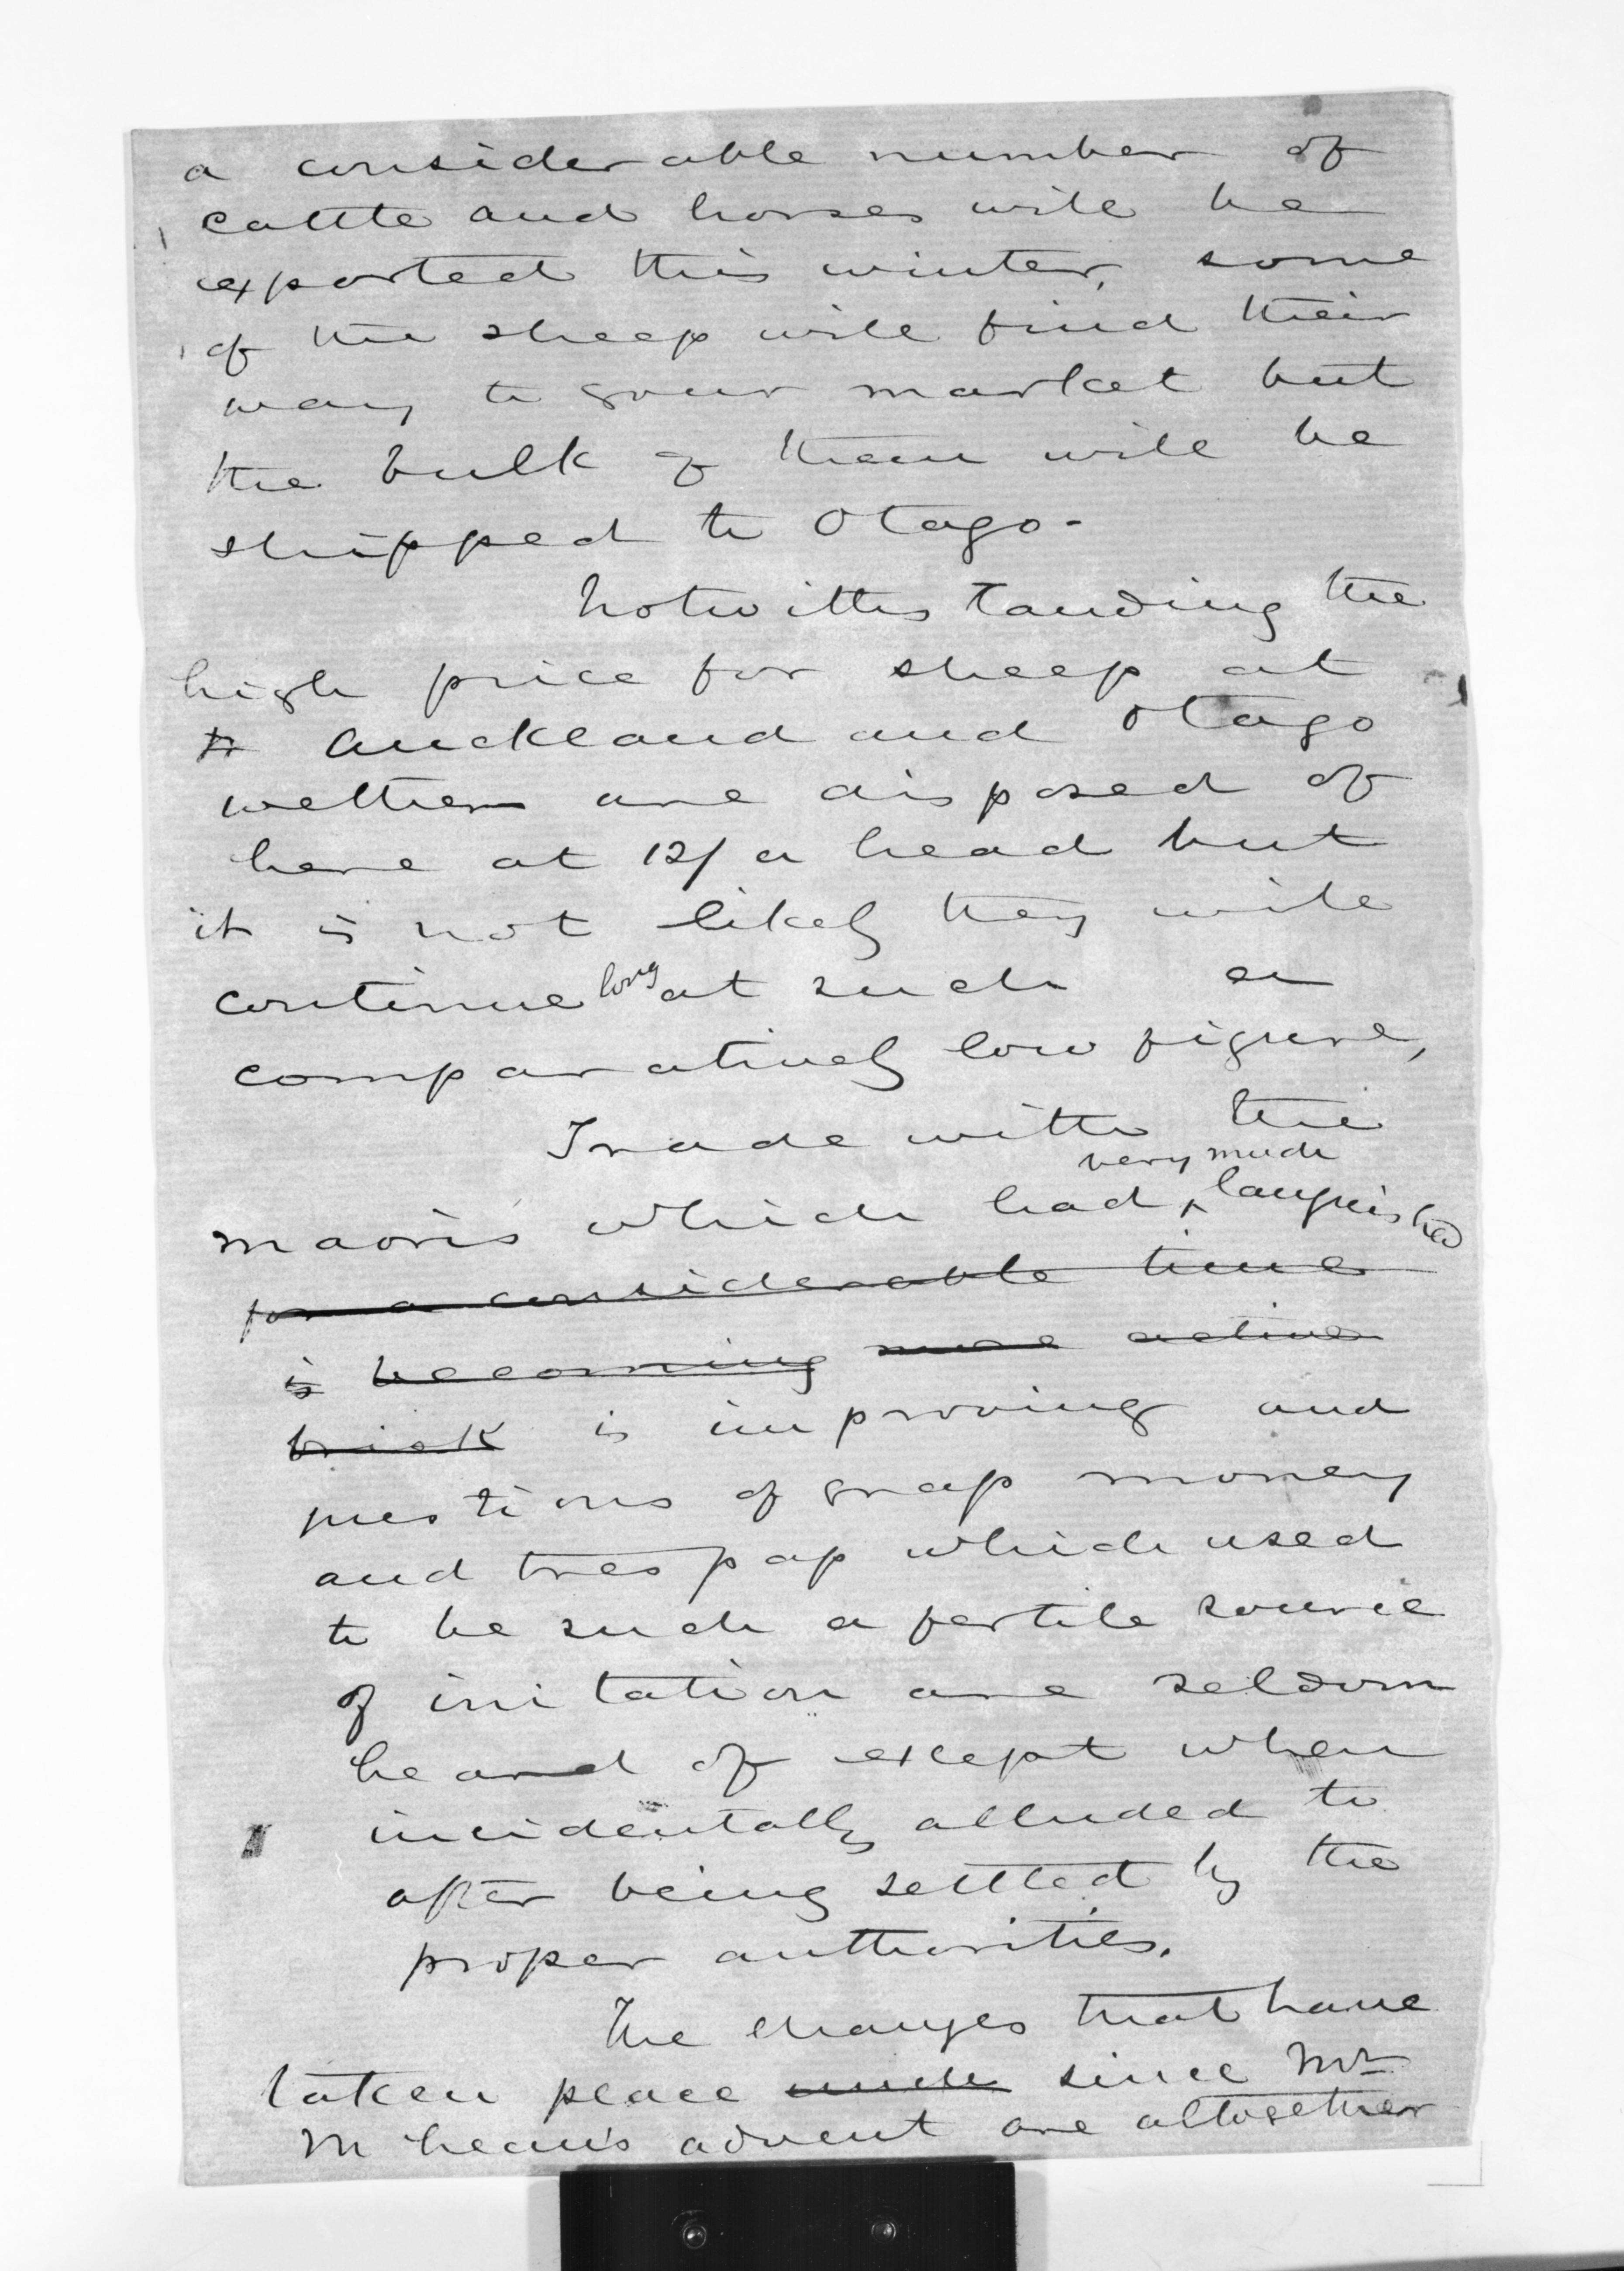 a considerable number of
cattle and horses will be
exported this winter, some
of the sheep will find their
way to your market but
the bulk of them will be
shipped to Otago -
Notwithstanding the
high price for sheep at
Auckland and Otago
wethers are disposed of
here at 12/ a head but
it is not likely they will
continue long at such a
comparatively low figure,
Trade with the
very much
maoris which had ^ languished
for a considerable time
is becoming more active
brisk is improving and
questions of grass money
and trespass which used
to be such a fertile source
of irritation are seldom
heard of except when
incidentally alluded to
after being settled by the
proper authorities.
The changes that have
taken place since Mr
McLean's advent are altogether